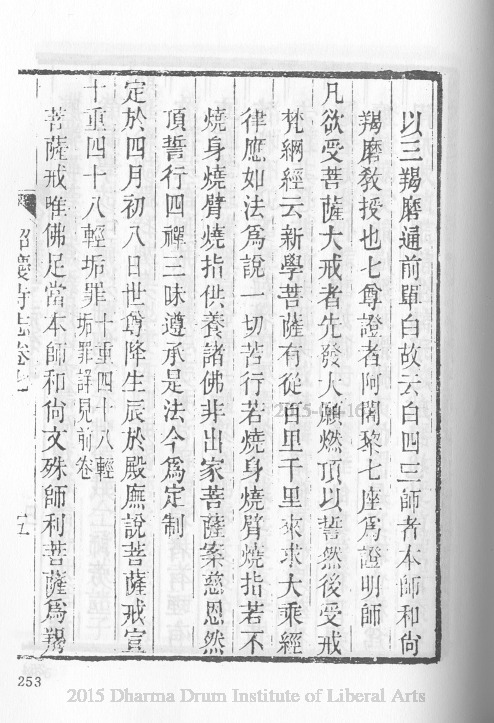 以三羯磨逼前單白故云白四三師者本師和尙
羯磨敎授也七尊證者阿闍黎七座爲證明師
凡欲受菩薩大戒者先發大願燃頂以誓然後受戒
梵綱經云新學菩薩有從百里千里來求大乘經
律應如法爲說一切苦行若燒身燒臂燒指若不
燒身燒臂燒指供養諸佛非出家菩薩案慈恩然
頂誓行四禪三昧遵承是法今爲定制
定於四月初八日世尊降生辰於殿廡說菩薩戒宣
十重四十八輕垢罪十重四十八輕
垢罪詳見前卷
菩薩戒唯佛足當本師和尙文殊師利菩薩爲羯
昭慶寺志卷七
五
253
2015-04-16
2015 Dharma Drum Institute of Liberal Arts